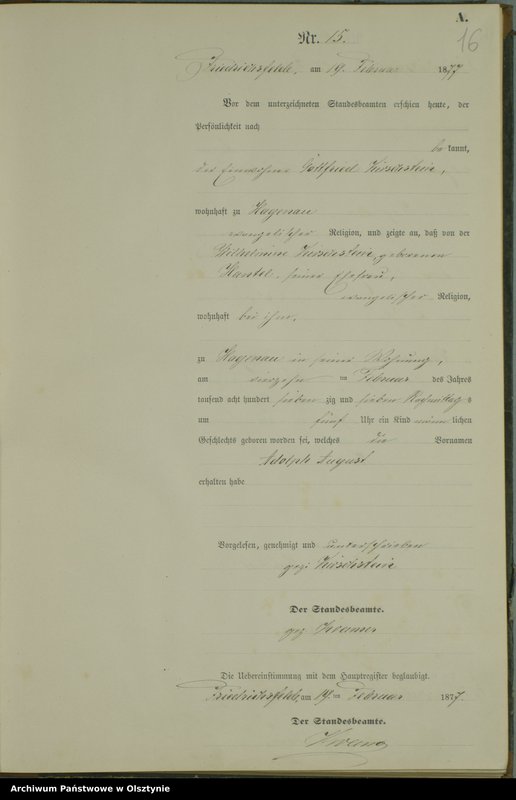 A.
16
Nr. 15.
Friedrichsfelde, am 19. Februar 1877
Vor dem unterzeichneten Standesbeamten erschien heute, der
Persönlichkeit nach
be kannt,
der Einwohner Gottfried
wohnhaft zu Hagenau
evangelischer Religion, und zeigte an, daß von der
Wilhelmine geborenen
seiner Ehefrau,
evangelischer Religion,
wohnhaft bei ihm,
zu Hagenau in seiner Wohnung,
am vierzehn ten Februar des Jahres
tausend acht hundert sieben zig und sieben Nachmittag s
um fünf Uhr ein Kind männ lichen
Geschlechts geboren worden sei, welches die Vornamen
Adolph August
erhalten habe
Vorgelesen, genehmigt und unterschrieben
gez:
Der Standesbeamte.
gez
Die Uebereinstimmung mit dem Hauptregister beglaubigt.
Friedrichsfelde, am 19. ten Februar 1877.
Der Standesbeamte.
Archiwum Państwowe w Olsztynie